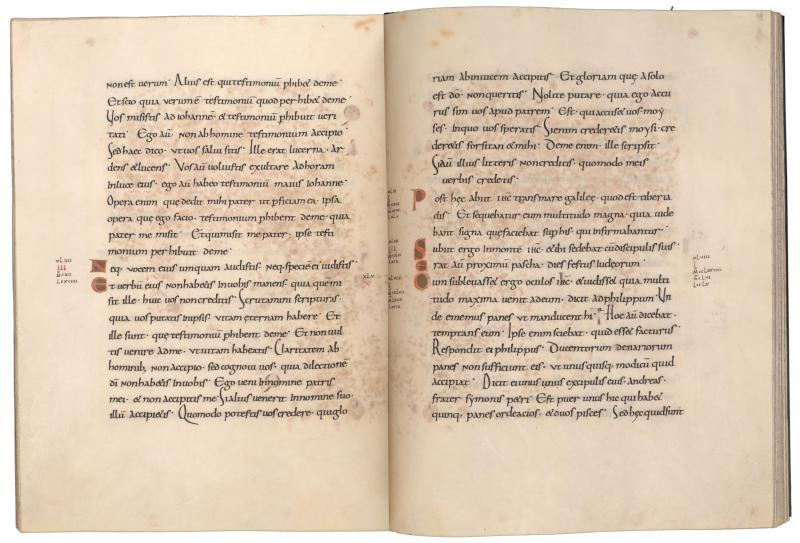 non est uerum · Alius est qui testimoniū phibet deme ·
Et scio quia uerum ē testimoniū quod perhibet deme ·
Vos misistis ad iohanne · & testimoniū phibuit ueri
tati · Ego aū · non ab homine testimonium accipio ·
Sed haec dico · ut uos salui sitis · Ille erat lucerna · Ar
dens & lucens · Vos aū uoluistis exultare Adhoram
In luce eius · ego aū habeo testimoniū maius Iohanne ·
Opera enim que dedit mihi pater ut pficiam ea · ipsa
opera que ego facio · testimonium phibent deme · quia
pater me misit · Et qui misit me pater · ipse testi
monium perhibuit deme ·
Neq · uocem eius umquam audistis · Neq · specie ei uidistis ·
Et uerbū eius non habetis Inuobis manens · quia quem
sit ille · huic uos non creditis · Scrutamini scripturas ·
quia uos putatis Inipsis · uitam ęternam habere · Et
ille sunt · quę testimoniū phibent deme · Et non uul
tis uenire Adme · ut uitam habeatis · Claritatem ab
hominib; non accipio · sed cognoui uos · quia dilectionē
dī non habetis Inuobis · Ego ueni Innomine patris
mei · & non accipitis me · Si alius uenerit Innomine suo ·
illū accipietis · Quomodo potestis uos credere · qui glo
XLIIII
III
riam Abinuicem accipitis · Et gloriam quę a solo
est dō · non queritis · Nolite putare · quia ego accu
rus sim uos apud patrem · Est · qui accuset uos · moy
ses · Inquo uos speratis · Si enim crederetis moysi · cre
deretis forsitan & mihi · Deme enim · ille scripsit ·
Si aū illius litteris non creditis · quomodo meis
uerbis credetis ·
Post hęc abiit ihc trans mare galileę · quod est tiberia
dis · Et sequebatur eum multitudo magna · quia uide
bant signa quę faciebat sup his · qui infirmabantur ·
Subiit ergo Inmonte ihc · & ibi sedebat cū discipulis suis ·
Erat aū proximū pascha · dies festus Iudeorum ·
Cum subleuasset ergo oculos ihc · & uidisset quia multi
tudo maxima uenit adeum · dicit ad philippum · Un
de ememus panes ut manducent hi · Hoc aū dicebat ·
temptans eum · Ipse enim sciebat · quid esset facturus ·
Respondit ei philippus · Ducentorum denariorum
panes non sufficiunt eis · ut unus quisq; modicū quid
accipiat · Dicit ei unus ex discipulis eius · andreas ·
frater symonis petri · Est puer unus hic qui habet
quinq; panes ordeacios · & duos pisces · Sed hęc quid sunt
XLVIII